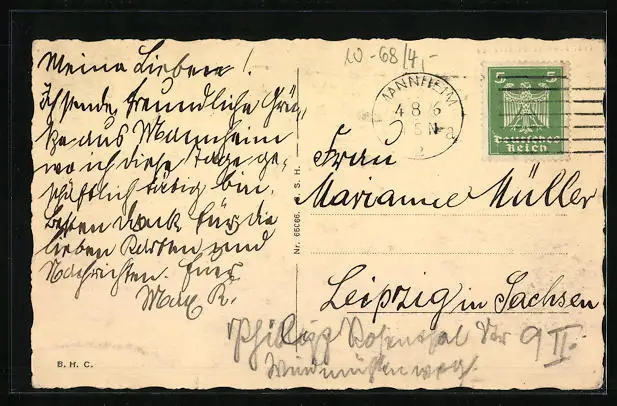 Meine Lieben!
Ich sende freundliche Grü-
ße aus Mannheim
wo ich diese Tage ge-
schäftlich tätig bin.
Besten Dank für die
lieben Karten und
Nachrichten. Euer
Max R.
B. H. C.
Nr. 66066. S. H.
10-68/4,-
MANNHEIM
4 8 26
5 N
2
5 5
Deutsches
Reich
Frau
Marianne Müller
Leipzig in Sachsen
Philipp Rosenthal Str 9 II.
Windmühlenweg.